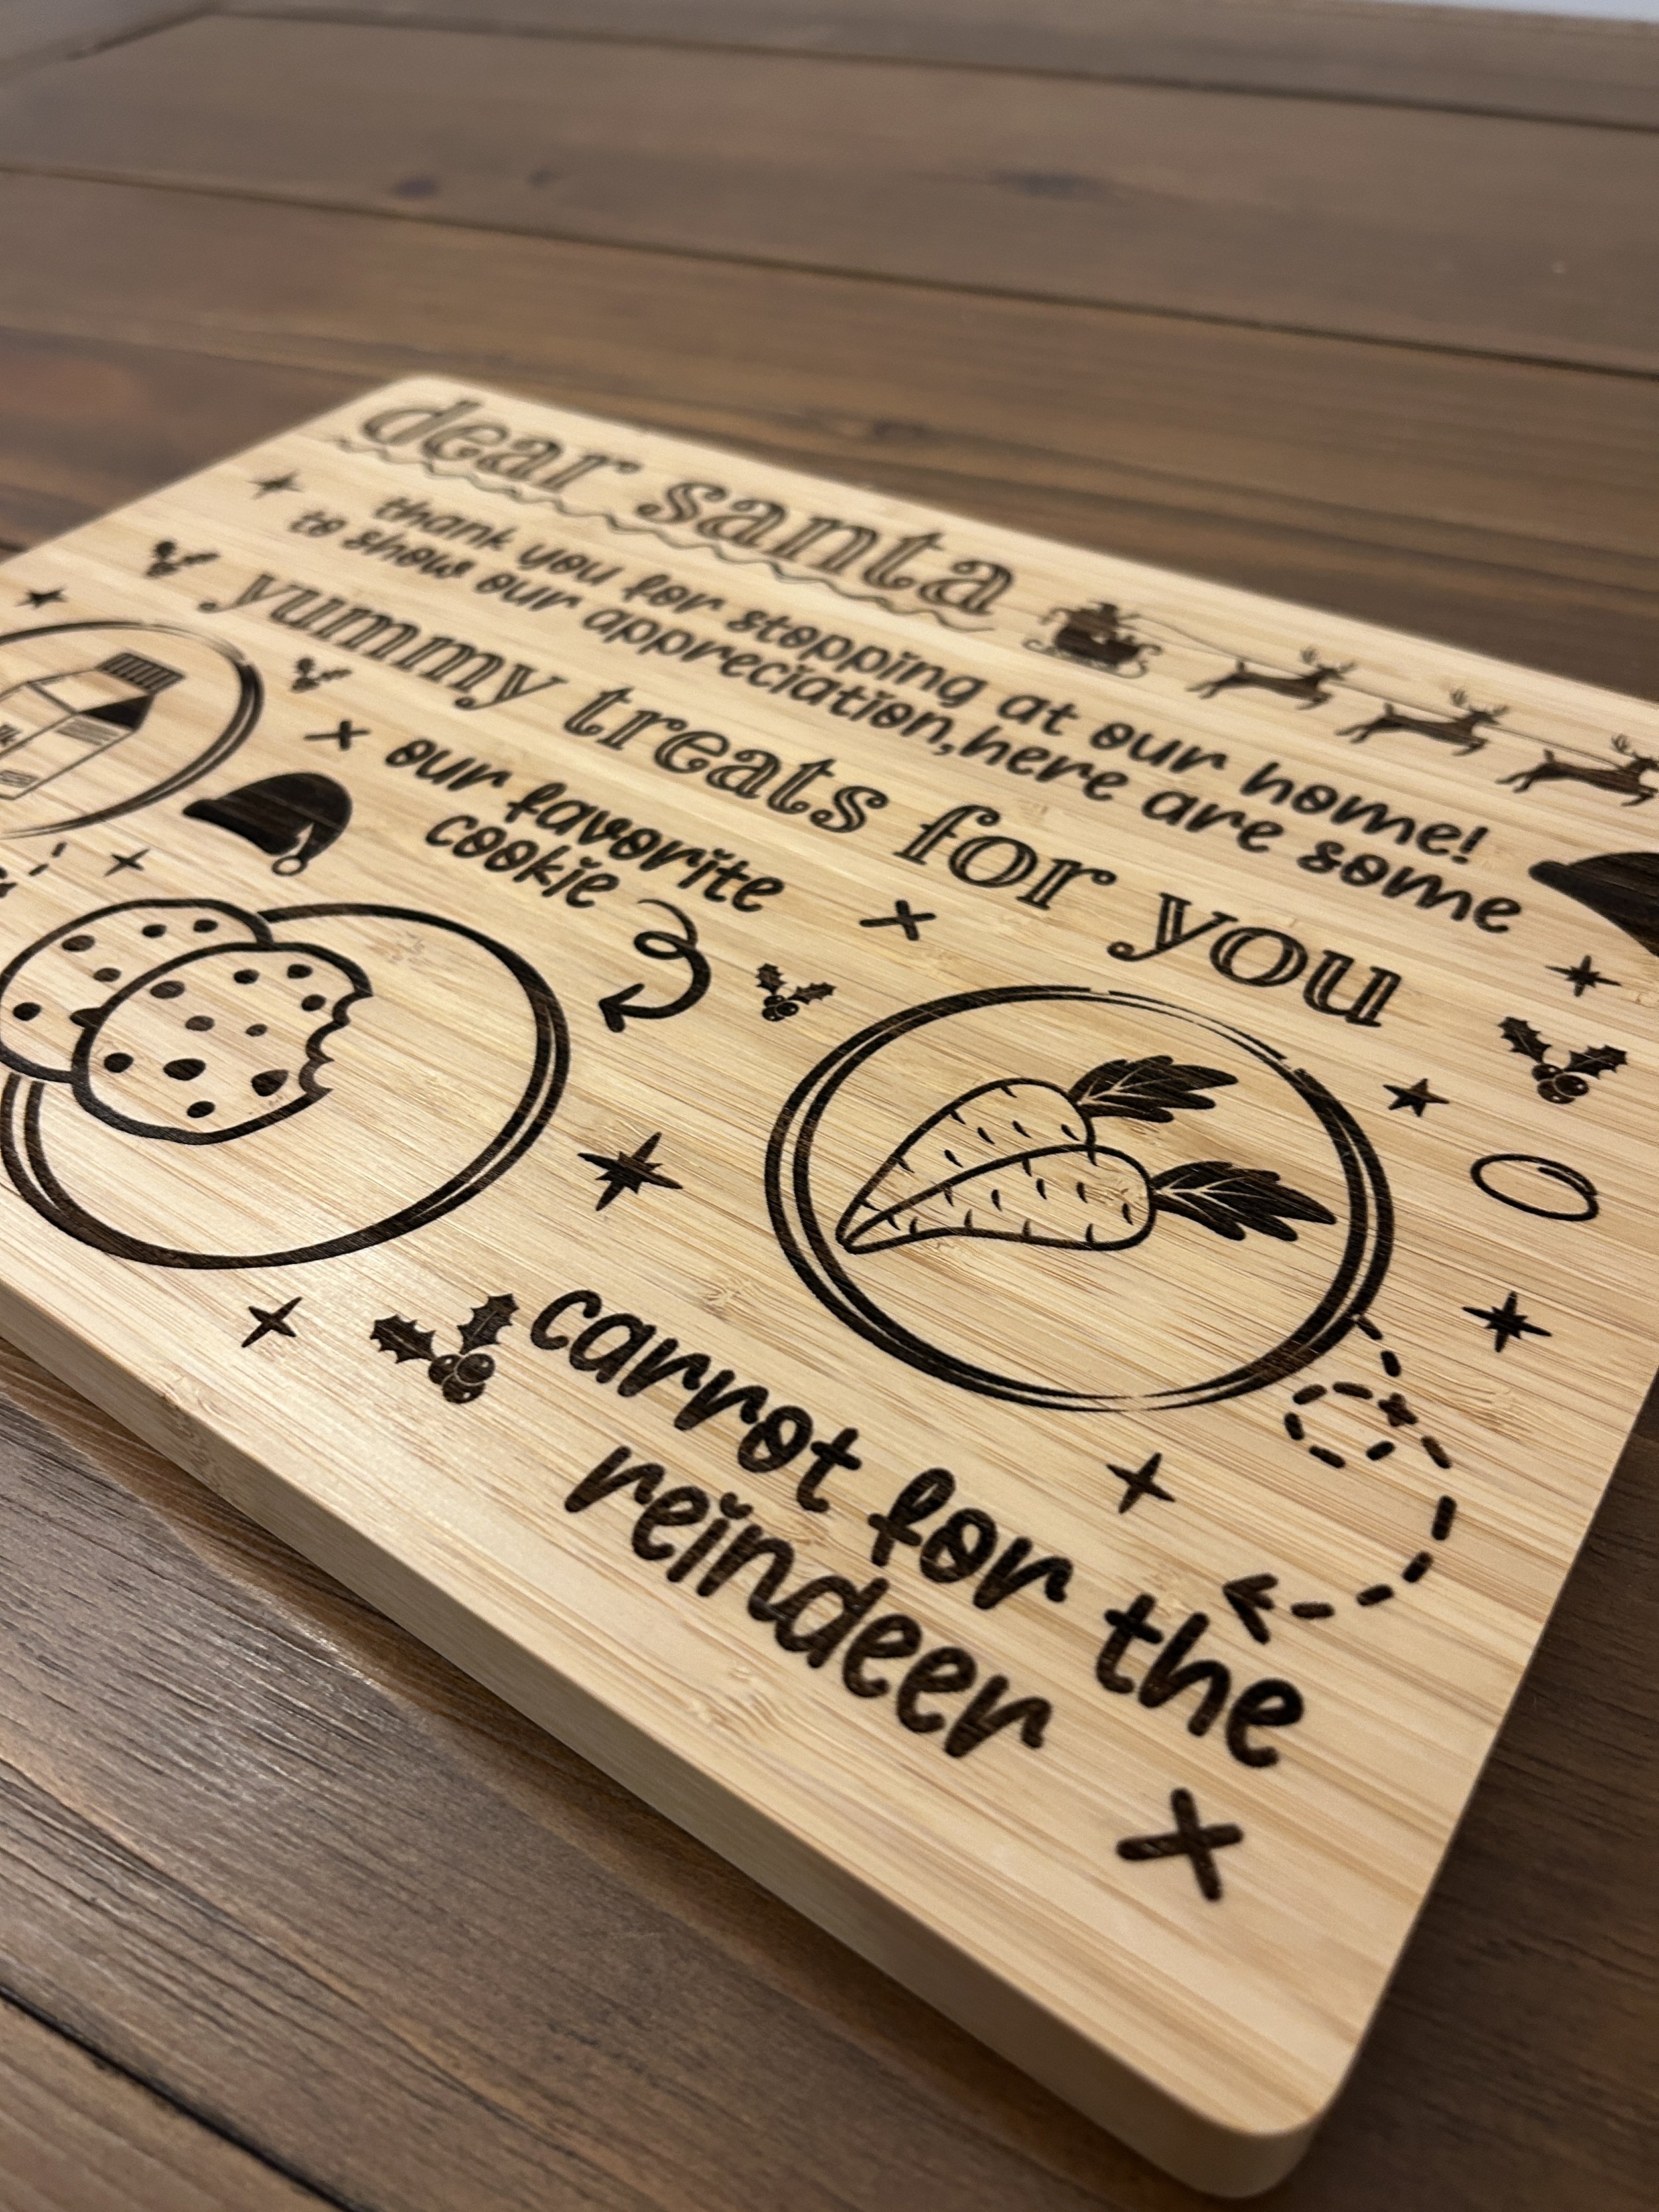 dear santa
thank you for stopping at our home!
to show our appreciation,here are some
yummy treats for you
our favorite
cookie
carrot for the
reindeer